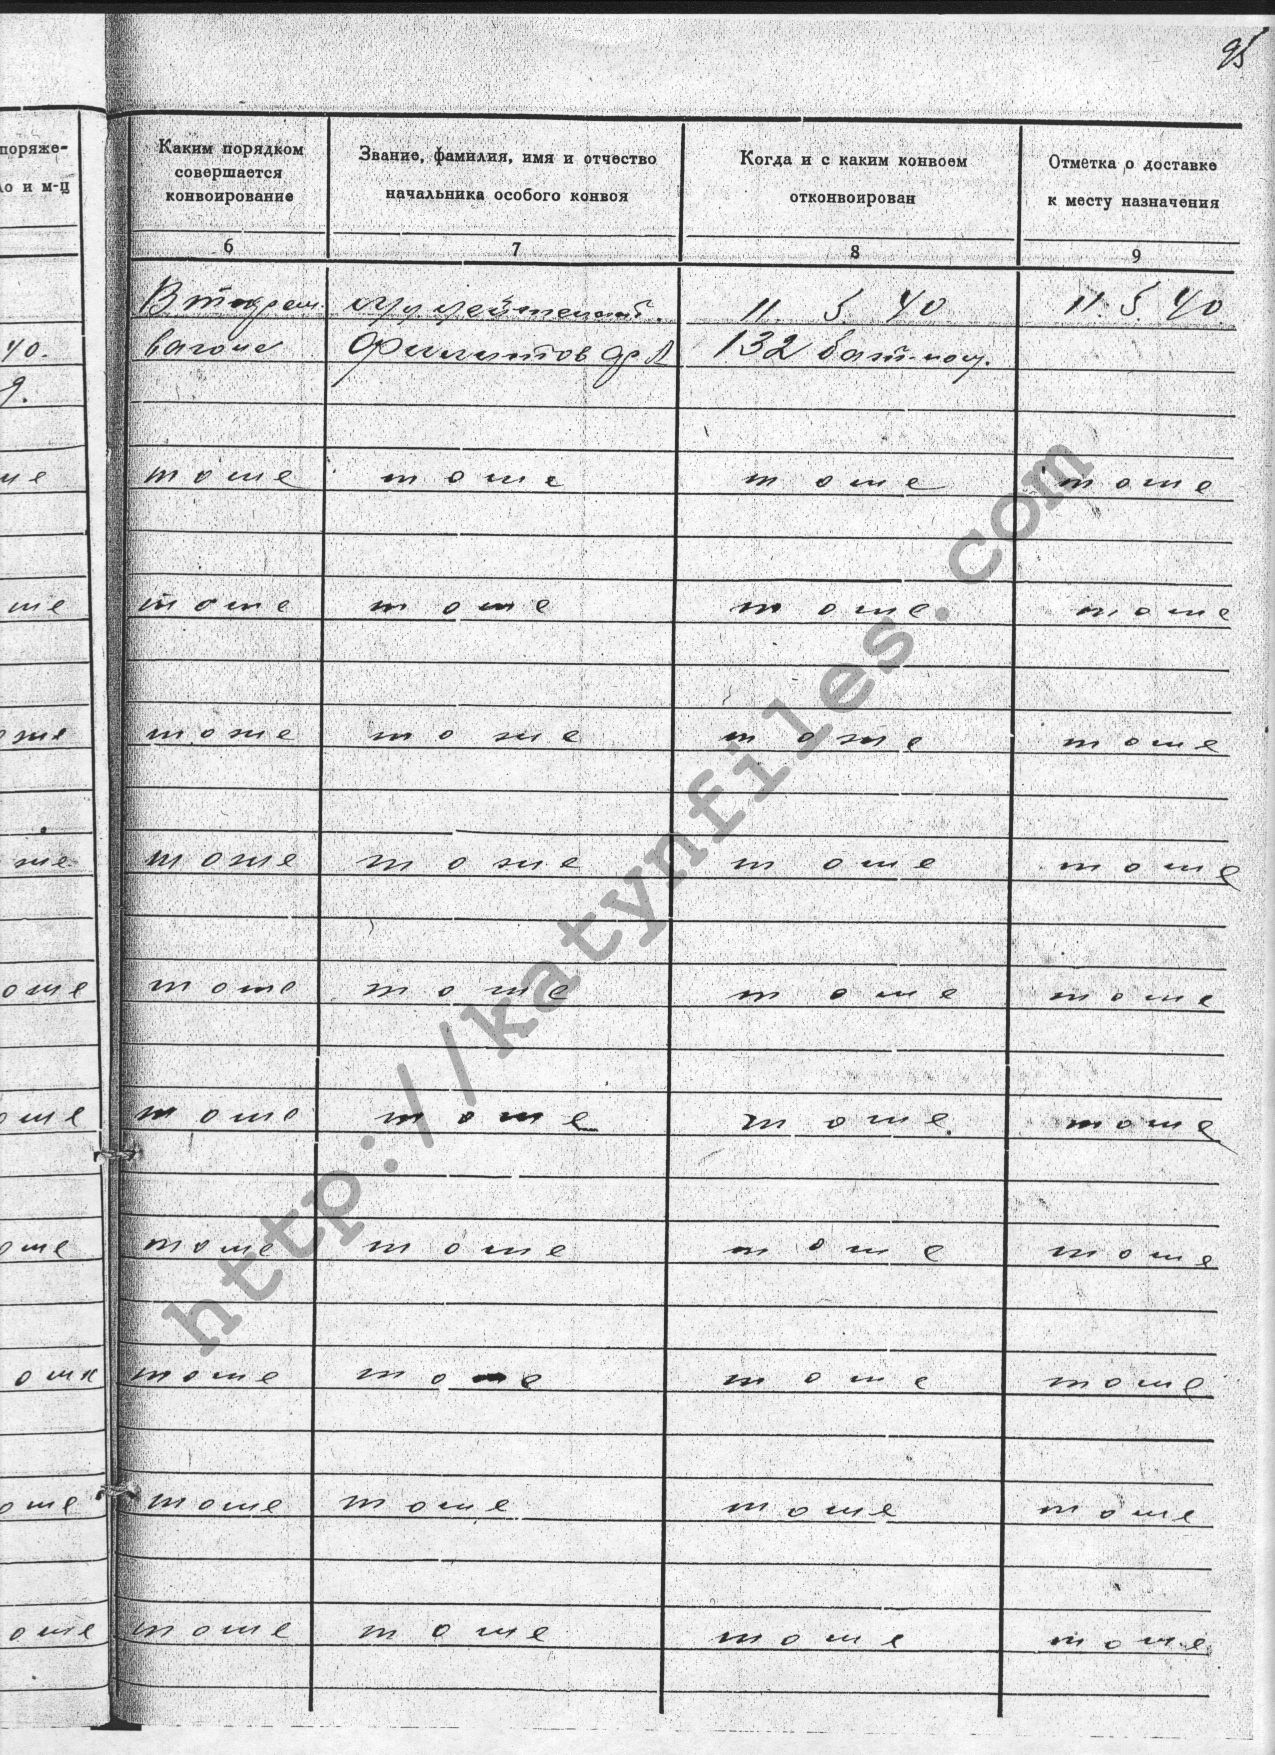 95
поряже-
ло и м-ц
Каким порядком
совершается
конвоирование
Звание, фамилия, имя и отчество
начальника особого конвоя
Когда и с каким конвоем
отконвоирован
Отметка о доставке
к месту назначения
6
7
8
9
В тюрем. 11. 5 40 11. 5. 40
40. вагоне Филиппов 132 бат-ном.
тоже тоже тоже тоже
тоже тоже тоже тоже
оже тоже тоже тоже тоже
же тоже тоже тоже тоже
оже тоже тоже тоже тоже
оже тоже тоже тоже тоже
оже тоже тоже тоже тоже
оже тоже тоже тоже тоже
оже тоже тоже тоже тоже
оже тоже тоже тоже тоже
http://katynfiles.com